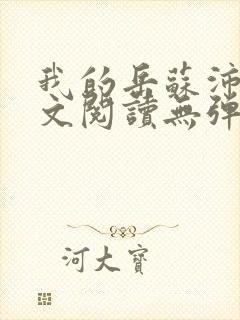 我的岳蘇沛
文閱讀無彈
河大寶